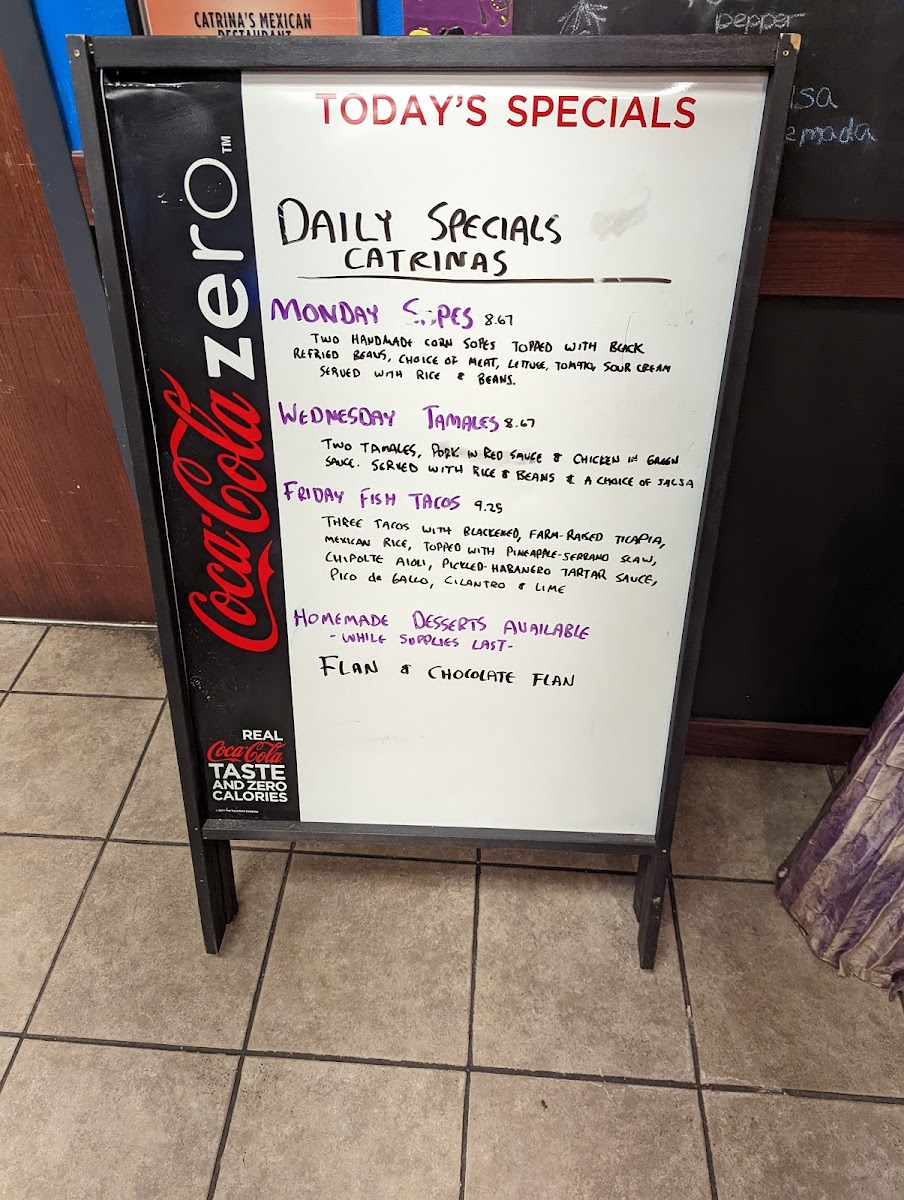 CATRINA'S MEXICAN
RESTAURANT
pepper
TODAY'S SPECIALS
Coca-Cola zero™
DAILY SPECIALS
CATRINAS
MONDAY SOPES 8.67
TWO HANDMADE CORN SOPES TOPPED WITH BLACK
REFRIED BEANS, CHOICE OF MEAT, LETTUCE, TOMATO, SOUR CREAM
SERVED WITH RICE & BEANS.
WEDNESDAY TAMALES 8.67
TWO TAMALES, PORK IN RED SAUCE & CHICKEN IN GREEN
SAUCE. SERVED WITH RICE & BEANS & A CHOICE OF SALSA
FRIDAY FISH TACOS 9.25
THREE TACOS WITH BLACKENED, FARM-RAISED TILAPIA,
MEXICAN RICE, TOPPED WITH PINEAPPLE-SERRANO SLAW,
CHIPOLTE AIOLI, PICKLED-HABANERO TARTAR SAUCE,
PICO de GALLO, CILANTRO & LIME
HOMEMADE DESSERTS AVAILABLE
-WHILE SUPPLIES LAST-
FLAN & CHOCOLATE FLAN
REAL
Coca-Cola
TASTE
AND ZERO
CALORIES